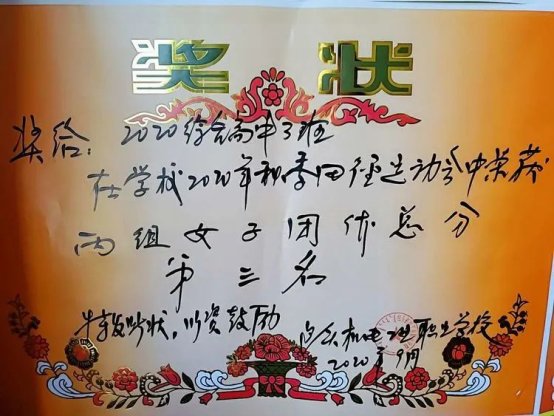 奖状
奖给：2020综合高中3班
在学校2020年秋季田径运动会中荣获
丙组女子团体总分
第三名
特发此状，以资鼓励
机电 职业学校
2020年9月